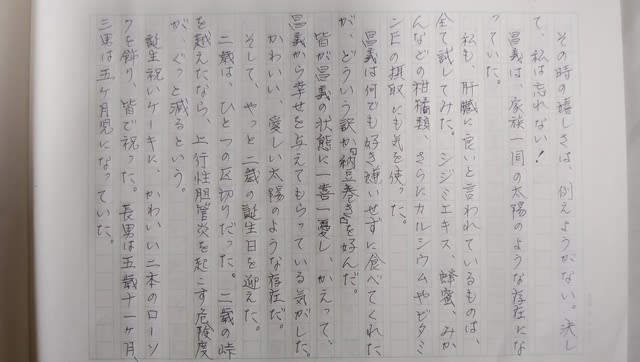 その時の嬉しさは、例えようがない。決し
て、私は忘れない！
昌義は、家族一同の太陽のような存在にな
っていた。
私も、肝臓に良いと言われているものは、
全て試してみた。シジミエキス、蜂蜜、みか
んなどの柑橘類、さらにカルシウムやビタミ
ンEの摂取にも気を使った。
昌義は何でも好き嫌いせずに食べてくれた
が、どういう訳か「納豆巻き」を好んだ。
皆が昌義の状態に一喜一憂し、かえって、
昌義から幸せを与えてもらっている気がした。
かわいい、愛しい太陽のような存在だ。
そして、やっと二歳の誕生日を迎えた。
二歳は、ひとつの区切りだった。二歳の峠
を越えたなら、上行性胆管炎を起こす危険度
が、ぐっと減るという。
誕生祝いケーキに、かわいい二本のローソ
クを飾り、皆で祝った。長男は五歳十一ヶ月、
三男は五ヶ月児になっていた。